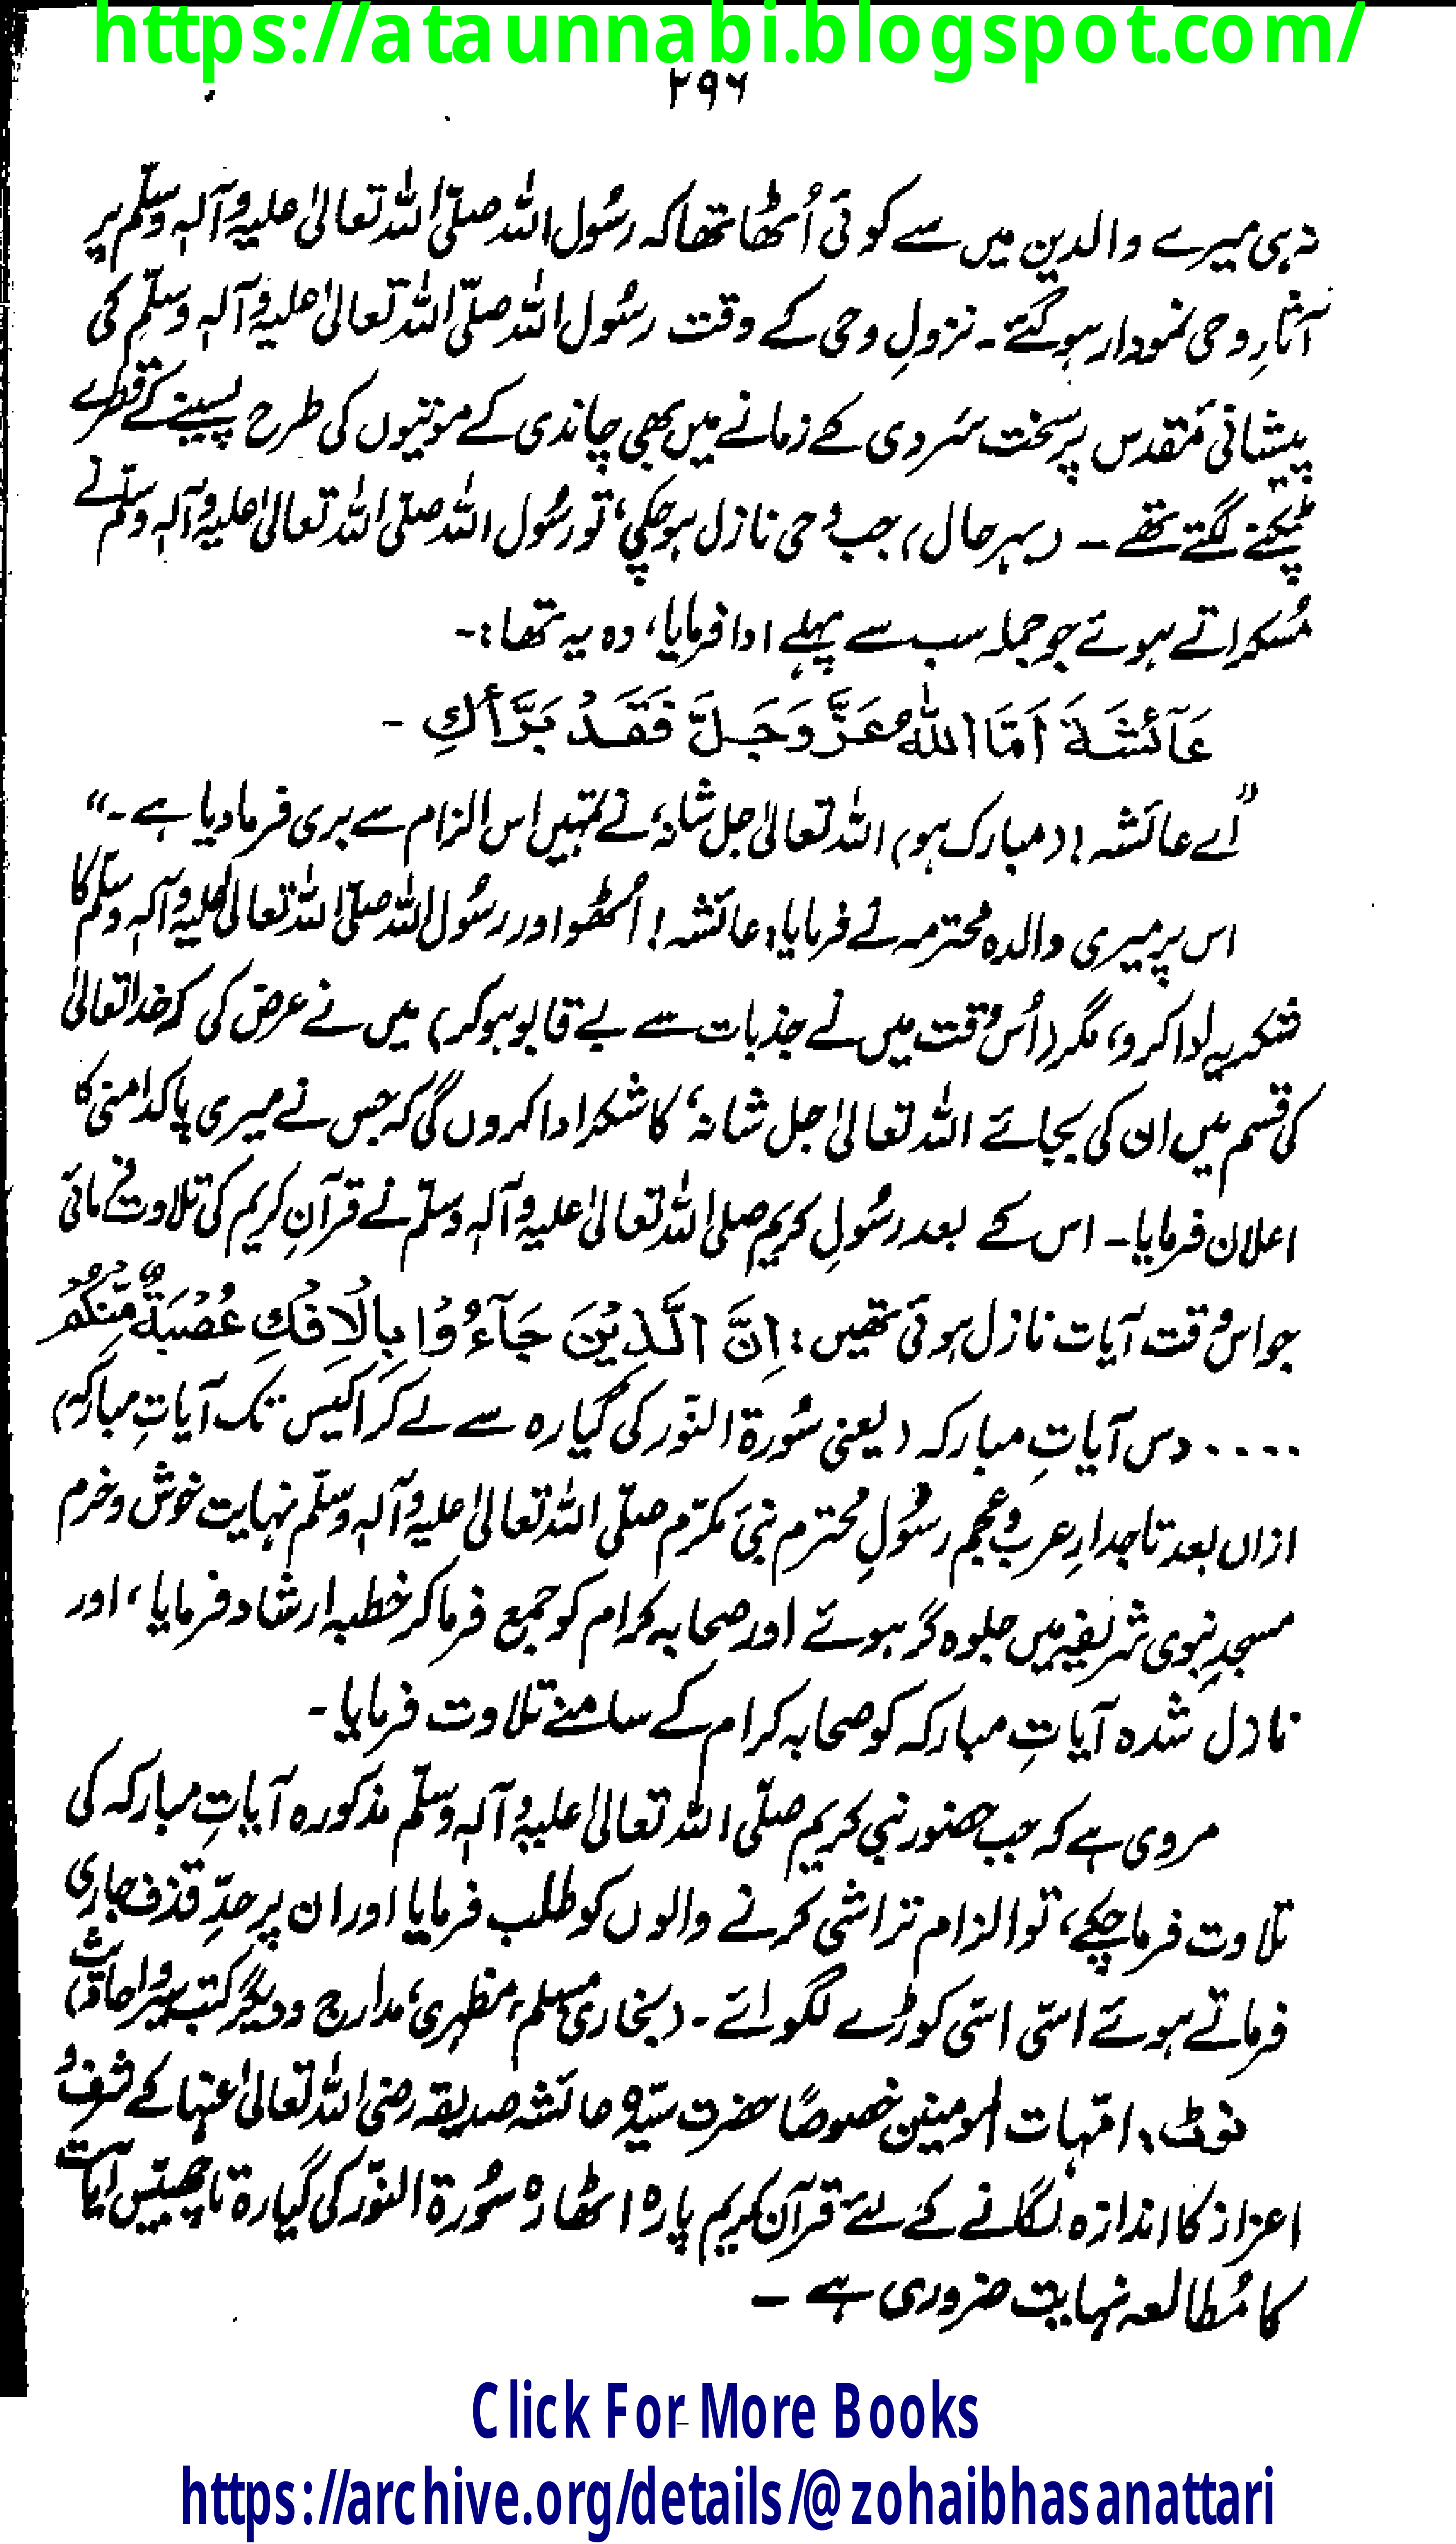 https://ataunnabi.blogspot.com/
۲۹۶
نہ ہی میرے والدین میں سے کوئی اُٹھا تھا کہ رسُول اللہ صلّی اللہ تعالیٰ علیہ وآلہٖ وسلّم پر
آثارِ وحی نمودار ہو گئے۔ نزولِ وحی کے وقت رسُول اللہ صلّی اللہ تعالیٰ علیہ وآلہٖ وسلّم کی
پیشانی مُقدس پر سخت سَردی کے زمانے میں بھی چاندی کے موتیوں کی طرح پسینے کے قطرے
ٹپکنے لگتے تھے ۔ (بہر حال) جب وحی نازل ہو چکی، تو رسُول اللہ صلّی اللہ تعالیٰ علیہ وآلہٖ وسلّم نے
مُسکراتے ہوئے جو جملہ سب سے پہلے ادا فرمایا، وہ یہ تھا :-
عَآئشَةَ اَمَّا اللّٰهُ عَزَّ وَجَلَّ فَقَدْ بَرَّأَكِ -
”اے عائشہ! (مبارک ہو) اللہ تعالیٰ جل شانہٗ نے تمہیں اس الزام سے بری فرما دیا ہے۔“
اس پر میری والدہ محترمہ نے فرمایا: عائشہ! اُٹھو اور رسُول اللہ صلّی اللہ تعالیٰ علیہ وآلہٖ وسلّم کا
شکریہ ادا کرو، مگر (اُس وقت میں نے جذبات سے بے قابو ہو کر) میں نے عرض کی کہ خدا تعالیٰ
کی قسم میں ان کی بجائے اللہ تعالیٰ جل شانہٗ کا شکر ادا کروں گی کہ جس نے میری پاکدامنی کا
اعلان فرمایا۔ اس کے بعد رسُولِ کریم صلی اللہ تعالیٰ علیہ وآلہٖ وسلّم نے قرآنِ کریم کی تلاوت فرمائی
جو اس وقت آیات نازل ہوئی تھیں: اِنَّ الَّذِيْنَ جَآءُوْا بِالْاِفْكِ عُصْبَةٌ مِّنْكُمْ
.... دس آیاتِ مبارکہ (یعنی سُورۃ النّور کی گیارہ سے لے کر اکیس تک آیاتِ مبارکہ)
ازاں بعد تاجدارِ عرب و عجم رسُولِ محترم نبیٔ مکرّم صلّی اللہ تعالیٰ علیہ وآلہٖ وسلّم نہایت خوش و خرم
مسجدِ نبوی شریف میں جلوہ گر ہوئے اور صحابہ کرام کو جمع فرما کر خطبہ ارشاد فرمایا، اور
نازل شدہ آیاتِ مبارکہ کو صحابہ کرام کے سامنے تلاوت فرمایا۔
مروی ہے کہ جب حضور نبی کریم صلّی اللہ تعالیٰ علیہ وآلہٖ وسلّم مذکورہ آیاتِ مبارکہ کی
تلاوت فرما چکے، تو الزام تراشی کرنے والوں کو طلب فرمایا اور ان پر حدِّ قذف جاری
فرماتے ہوئے اسّی اسّی کوڑے لگوائے۔ (بخاری، مسلم، مظہری، مدارج و دیگر کتب سیر و احادیث)
نوٹ: امّہات المومنین خصوصًا حضرت سیّدہ عائشہ صدیقہ رضی اللہ تعالیٰ عنہا کے شرف و
اعزاز کا اندازہ لگانے کے لئے قرآن کریم پارہ اٹھارہ سُورۃ النّور کی گیارہ تا چھبیس آیات
کا مُطالعہ نہایت ضروری ہے ۔
Click For More Books
https://archive.org/details/@zohaibhasanattari